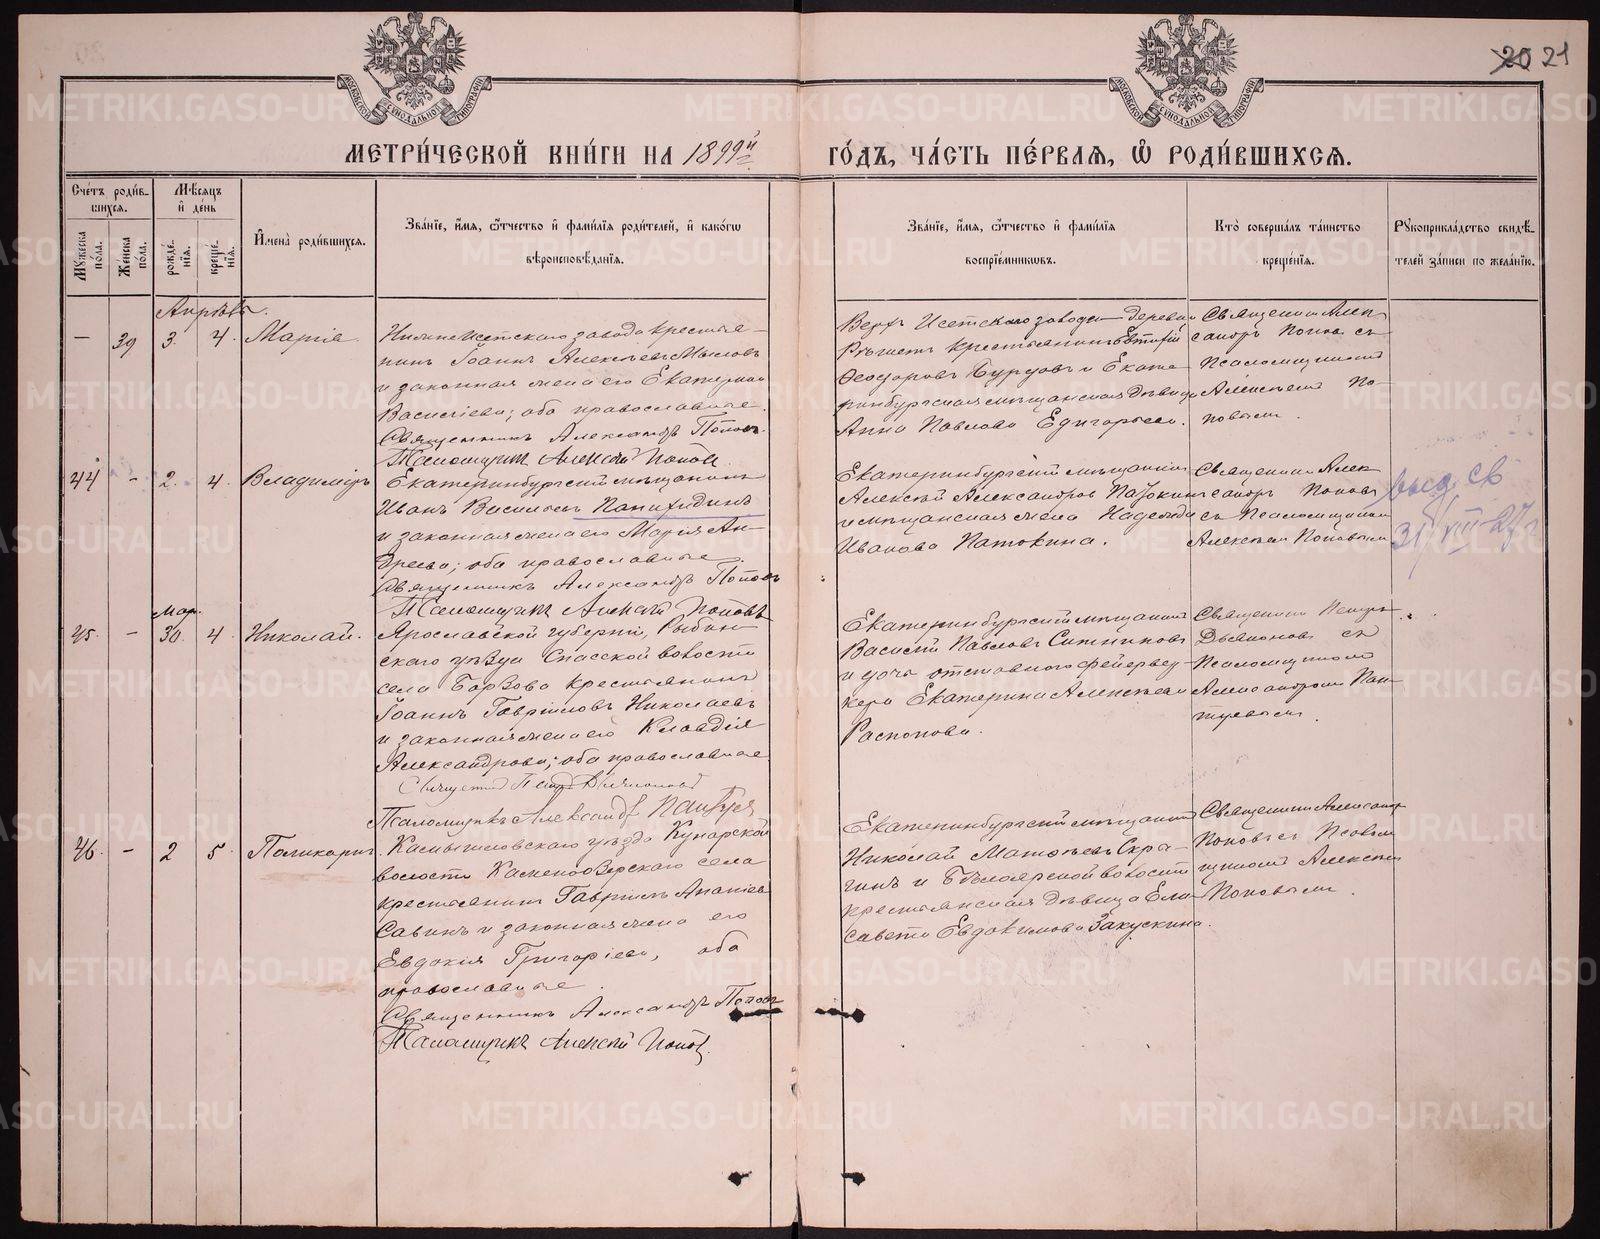 20 21
МЕТРИ́ЧЕСКОЙ КНИ́ГИ НА 1899й
ГО́ДЪ, ЧА́СТЬ ПЕ́РВАЯ, Ѽ РОДИ́ВШИХСЯ.
Сче́тъ роди́в-
шихся.
Мꙋжеска по́ла.
Женска по́ла.
Мѣ́сяцъ и де́нь
рожде́-нїя.
креще́-нїя.
И҆мена̀ роди́вшихся.
Зва́нїе, и҆́мя, ѻ҆́тчество и҆ фами́лїя роди́телей, и҆ како́гѡ
вѣроисповѣ́данїя.
Зва́нїе, и҆́мя, ѻ҆́тчество и҆ фами́лїя
воспрїе́мникѡвъ.
Кто̀ соверша́лъ та́инство
креще́нїя.
Рꙋкоприкла́дство свидѣ́-
телей за́писи по жела́нїю.
Апрѣль.
— 39 3. 4. Марія
Нижнеисетскаго завода крестья-
нинъ Іоаннъ Алексѣевъ Мысловъ
и законная жена его Екатерина
Васильева; оба православные.
Священникъ Александръ Поповъ.
Псаломщикъ Алексѣй Поповъ.
Верхъ Исетскаго завода деревни
Рѣшетъ крестьянинъ
Ѳеодоровъ Бурцовъ и Екате-
ринбургская мѣщанская дѣвица
Анна Павлова Едигорьева.
Священникъ Алек
сандръ Поповъ съ
Псаломщикомъ
Алексѣемъ По-
повымъ.
44 – 2. 4. Владиміръ
Екатеринбургскій мѣщанинъ
Иванъ Васильевъ Панифидинъ
и законная жена его Марія Ан-
дреева; оба православные.
Священникъ Александръ Поповъ
Псаломщикъ Алексѣй Поповъ
Екатеринбургскій мѣщанинъ
Алексѣй Александровъ Патокинъ
и мѣщанская жена Надежда
Иванова Патокина.
Священникъ Алек
сандръ Поповъ
съ Псаломщикомъ
Алексѣемъ Поповымъ
выд. св
31/VIII-27 г
Мар.
45. – 30. 4. Николай.
Ярославской губерніи, Рыбин-
скаго уѣзда Спасской волости
села Борзова крестьянинъ
Іоаннъ Гавріиловъ Николаевъ
и законная жена его Клавдія
Александрова; оба православные
Священникъ Петръ Дьяконовъ
Псаломщикъ Александръ Пантуевъ
Екатеринбургскій мѣщанинъ
Василій Павловъ Ситниковъ
и дочь отставного фейервер-
кера Екатерина Алексѣева
Распопова.
Священникъ Петръ
Дьяконовъ съ
Псаломщикомъ
Александромъ Пан-
туевымъ.
46. – 2 5. Поликарпъ
Камышловскаго уѣзда Кунарской
волости Каменноозерскаго села
крестьянинъ Гавріилъ Ананіевъ
Савинъ и законная жена его
Евдокія Григоріева, оба
православные.
Священникъ Александръ Поповъ
Псаломщикъ Алексѣй Поповъ.
Екатеринбургскій мѣщанинъ
Николай Матвѣевъ Скря-
гинъ и Бѣлоярской волости
крестьянская дѣвица Ели-
савета Евдокимова Закускина.
Священникъ Александръ
Поповъ съ Псалом
щикомъ Алексѣемъ
Поповымъ.